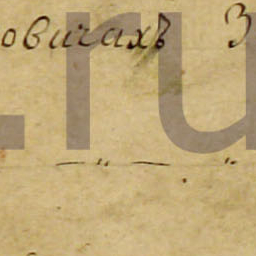 овичахъ 3
.ru
— " — "